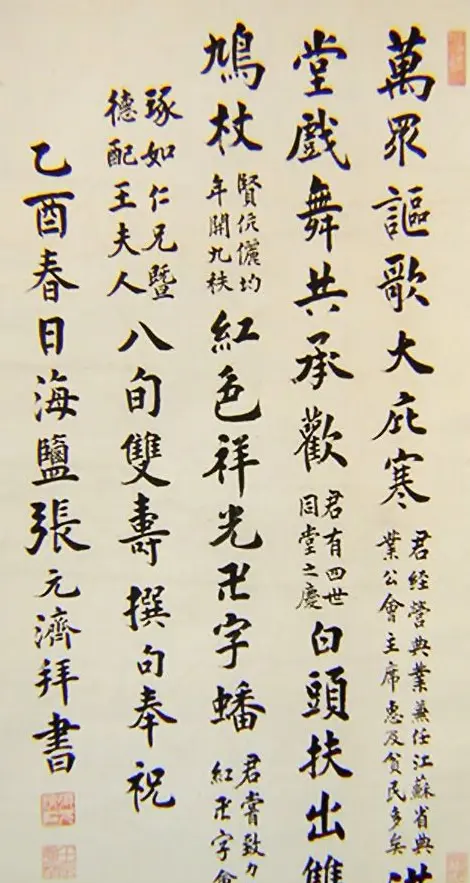 萬眾謳歌大庇寒
君經營典業兼任江蘇省典
業公會主席惠及貧民多矣
堂戲舞共承歡
君有四世
同堂之慶
白頭扶出雙
鳩杖
賢伉儷均
年開九秩
紅色祥光卍字蟠
君嘗致力
紅卍字會
琢如仁兄暨
德配王夫人
八旬雙壽撰句奉祝
乙酉春日海鹽張元濟拜書